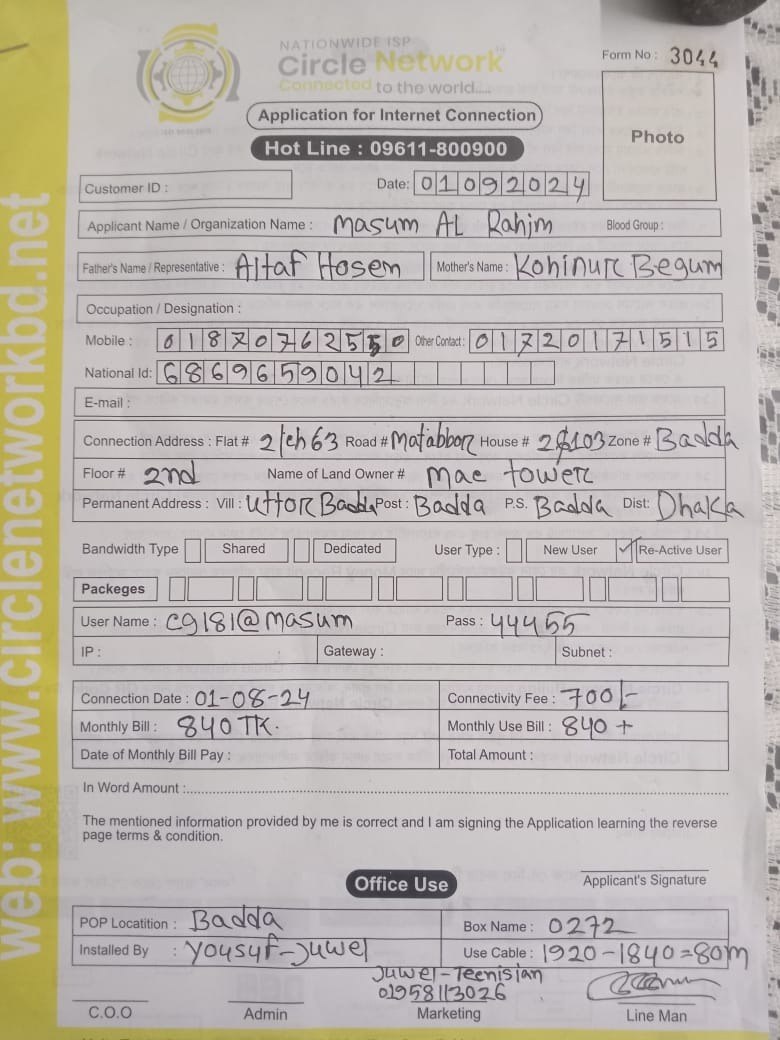 NATIONWIDE ISP
Circle Network
Connected to the world....
Form No : 3044
Application for Internet Connection
Photo
Hot Line : 09611-800900
Customer ID :
Date: 01092024
Applicant Name / Organization Name : Masum AL Rahim Blood Group :
Father's Name / Representative : Altaf Hosen Mother's Name : Kohinur Begum
Occupation / Designation :
Mobile : 01870762550 Other Contact : 01720171515
National Id: 6869659042
E-mail :
Connection Address : Flat # Road # Matabbor House # Zone # Badda
Floor # 2nd Name of Land Owner # Mae tower
Permanent Address : Vill : Uttor Badda Post : Badda P.S. Badda Dist: Dhaka
Bandwidth Type Shared Dedicated User Type : New User ✓ Re-Active User
Packeges
User Name : cg181@masum Pass : 44455
IP : Gateway : Subnet :
Connection Date : 01-08-24 Connectivity Fee : 700/-
Monthly Bill : 840 TK. Monthly Use Bill : 840 +
Date of Monthly Bill Pay : Total Amount :
In Word Amount :
The mentioned information provided by me is correct and I am signing the Application learning the reverse
page terms & condition.
Applicant's Signature
Office Use
POP Locatition : Badda Box Name : 0272
Installed By : Yousuf-Juwel Use Cable : 1920-1840=80m
Juwel-Teenisian
01958113026
C.O.O Admin Marketing Line Man
web: www.circlenetworkbd.net